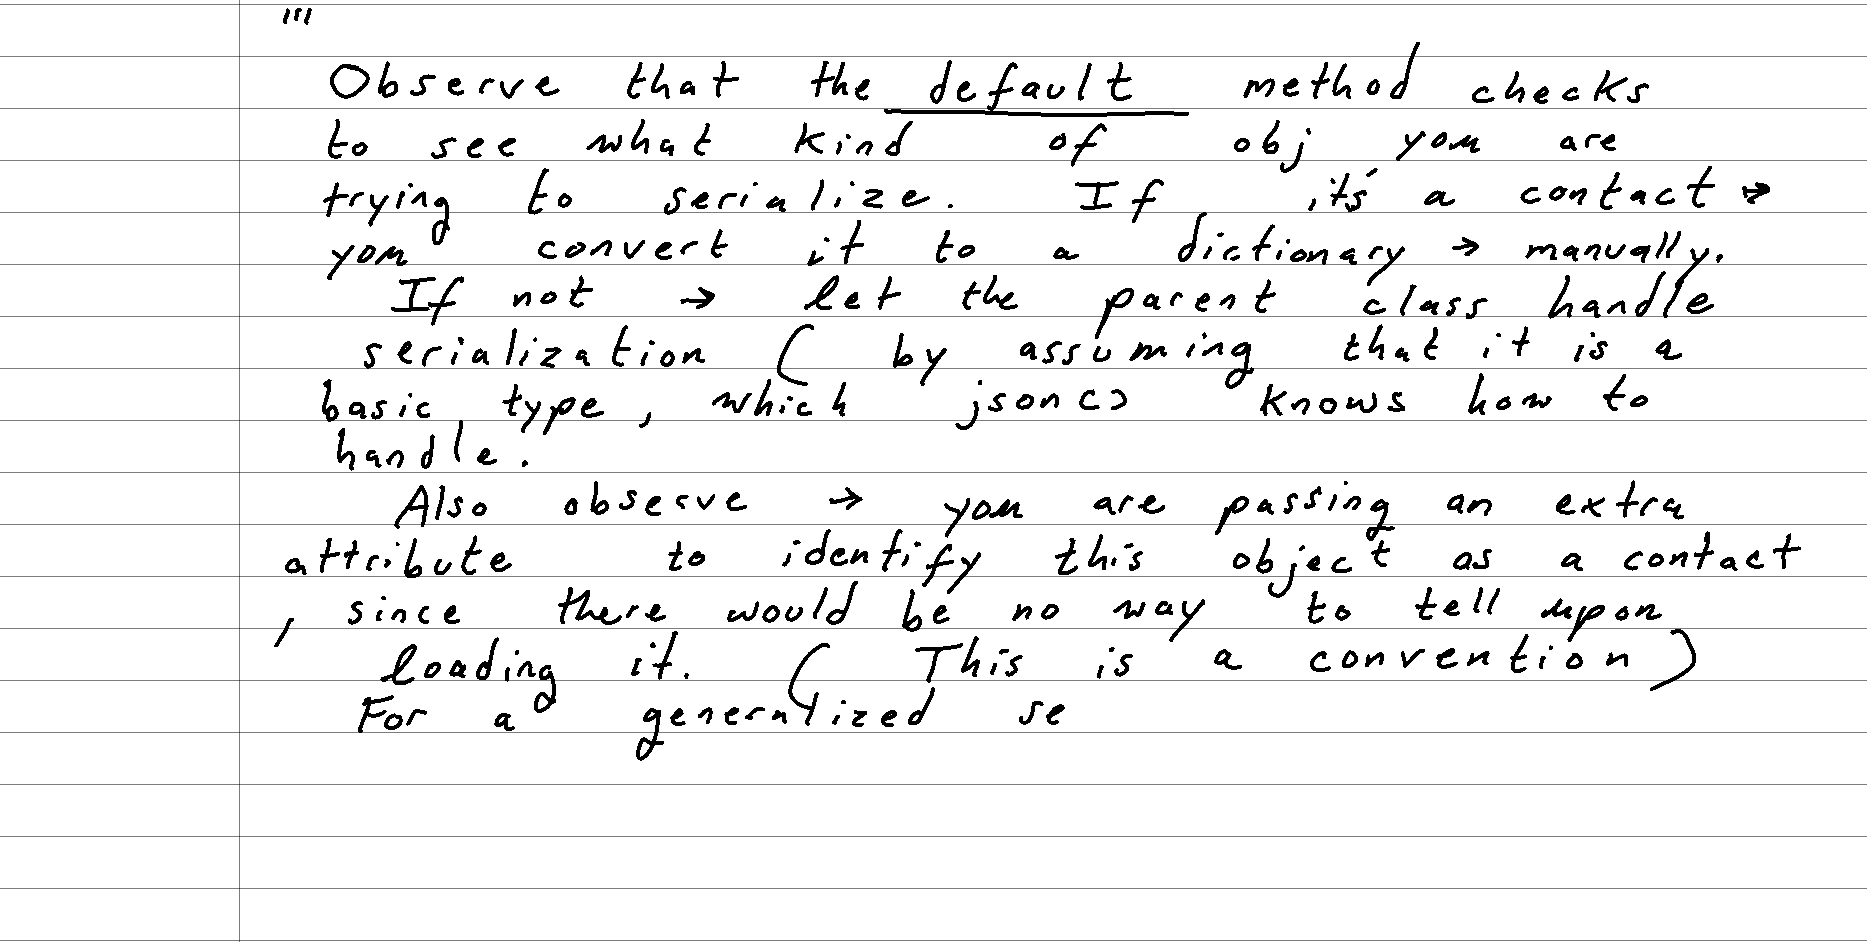 '''
Observe that the default method checks
to see what kind of obj you are
trying to serialize. If it's a contact →
you convert it to a dictionary → manually.
If not → let the parent class handle
serialization ( by assuming that it is a
basic type, which json() knows how to
handle.
Also observe → you are passing an extra
attribute to identify this object as a contact
, since there would be no way to tell upon
loading it. ( This is a convention )
For a generalized se